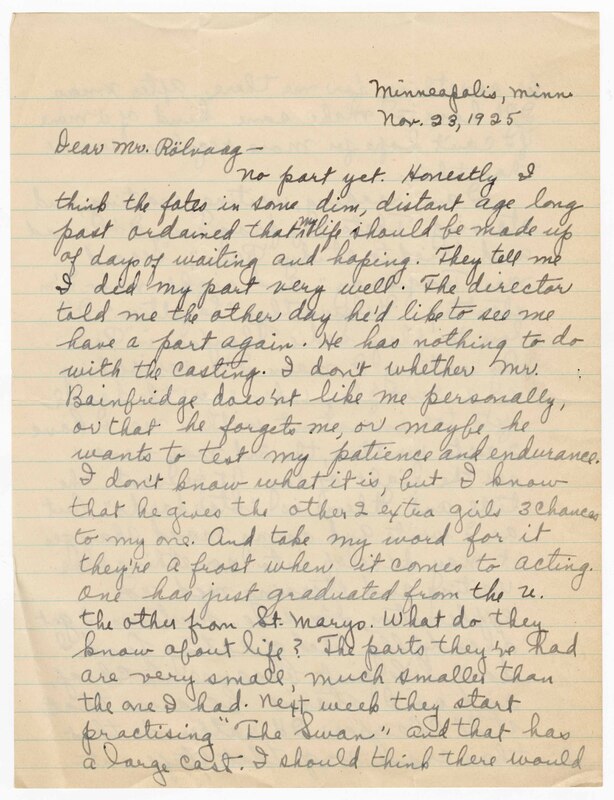 Minneapolis, Minn.
Nov. 23, 1925
Dear Mr. Rölvaag—
No part yet. Honestly I
think the fates in some dim, distant age long
past ordained that my life should be made up
of days of waiting and hoping. They tell me
I did my part very well. The director
told me the other day he'd like to see me
have a part again. He has nothing to do
with the casting. I don't whether Mr.
Bainbridge does'nt like me personally,
or that he forgets me, or maybe he
wants to test my patience and endurance.
I don't know what it is, but I know
that he gives the other 2 extra girls 3 chances
to my one. And take my word for it
they're a frost when it comes to acting.
One has just graduated from the U.
the other from St. Marys. What do they
know about life? The parts they've had
are very small, much smaller than
the one I had. Next week they start
practising "The Swan" and that has
a large cast. I should think there would